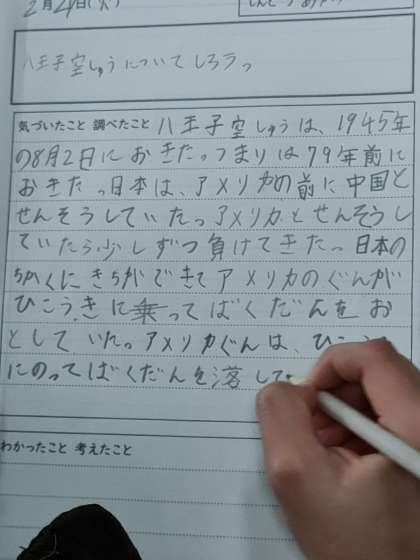 2月4日(火)
八王子空しゅうについてしろう。
気づいたこと 調べたこと 八王子空しゅうは、1945年
の8月2日におきた。つまりは79年前に
おきた。日本は、アメリカの前に中国と
せんそうしていた。アメリカとせんそうし
ていたら少しずつ負けてきた。日本の
ちかくにきちができてアメリカのぐんが
ひこうきに乗ってばくだんをお
としていた。アメリカぐんは、ひこう
にのってばくだんを落して
わかったこと 考えたこと